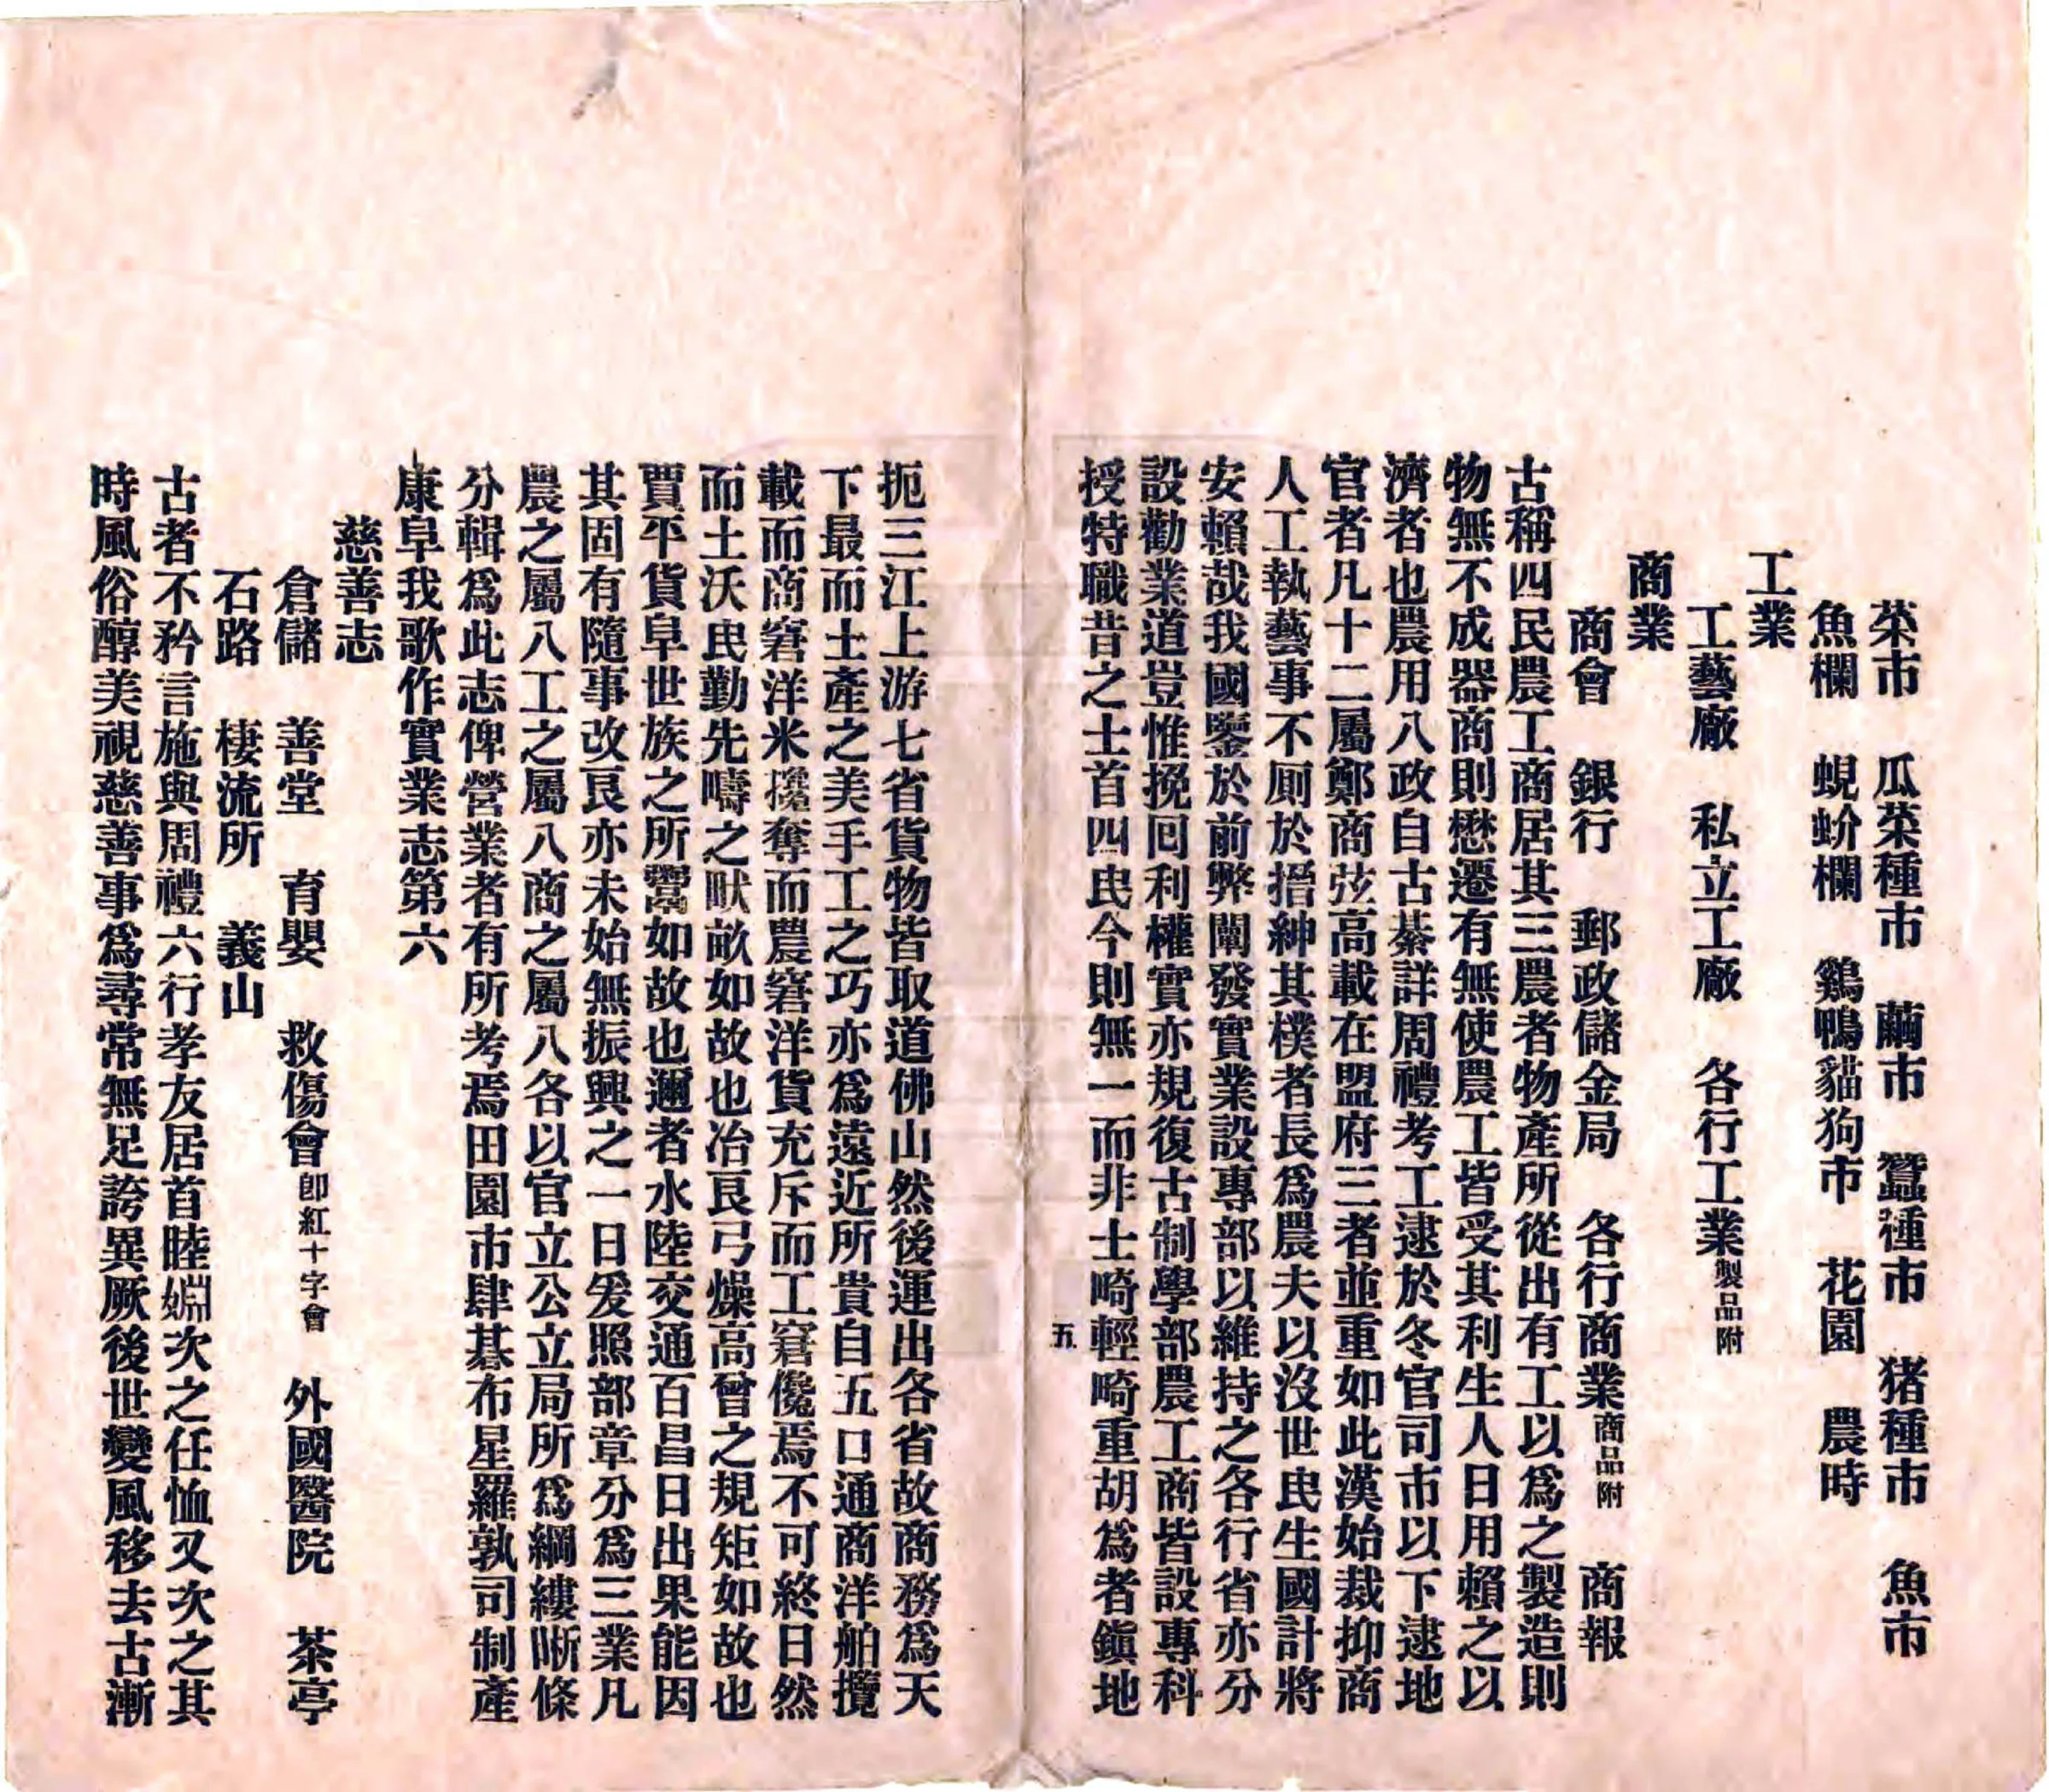 菜市　瓜菜種市　繭市　蠶種市　猪種市　魚市
魚欄　蜆蚧欄　鷄鴨貓狗市　花園　農時
工業
工藝廠　私立工廠　各行工業製品附
商業
商會　銀行　郵政儲金局　各行商業商品附　商報
古稱四民農工商居其三農者物產所從出有工以爲之製造則
物無不成器商則懋遷有無使農工皆受其利生人日用賴之以
濟者也農用八政自古綦詳周禮考工逮於冬官司市以下逮地
官者凡十二屬鄭商弦高載在盟府三者並重如此漢始裁抑商
人工執藝事不厠於搢紳其樸者長爲農夫以沒世民生國計將
安賴哉我國鑒於前弊闡發實業設專部以維持之各行省亦分
設勸業道豈惟挽回利權實亦規復古制學部農工商皆設專科
授特職昔之士首四民今則無一而非士畸輕畸重胡爲者鎭地
五
扼三江上游七省貨物皆取道佛山然後運出各省故商務爲天
下最而土產之美手工之巧亦爲遠近所貴自五口通商洋舶攬
載而商窘洋米攙奪而農窘洋貨充斥而工窘儳焉不可終日然
而土沃民勤先疇之畎畝如故也冶良弓燥高曾之規矩如故也
賈平貨阜世族之所鬻如故也邇者水陸交通百昌日出果能因
其固有隨事改良亦未始無振興之一日爰照部章分爲三業凡
農之屬八工之屬八商之屬八各以官立公立局所爲綱縷晰條
分輯爲此志俾營業者有所考焉田園市肆碁布星羅孰司制產
康阜我歌作實業志第六
慈善志
倉儲　善堂　育嬰　救傷會卽紅十字會　外國醫院　茶亭
石路　棲流所　義山
古者不矜言施與周禮六行孝友居首睦婣次之任恤又次之其
時風俗醇美視慈善事爲尋常無足誇異厥後世變風移去古漸